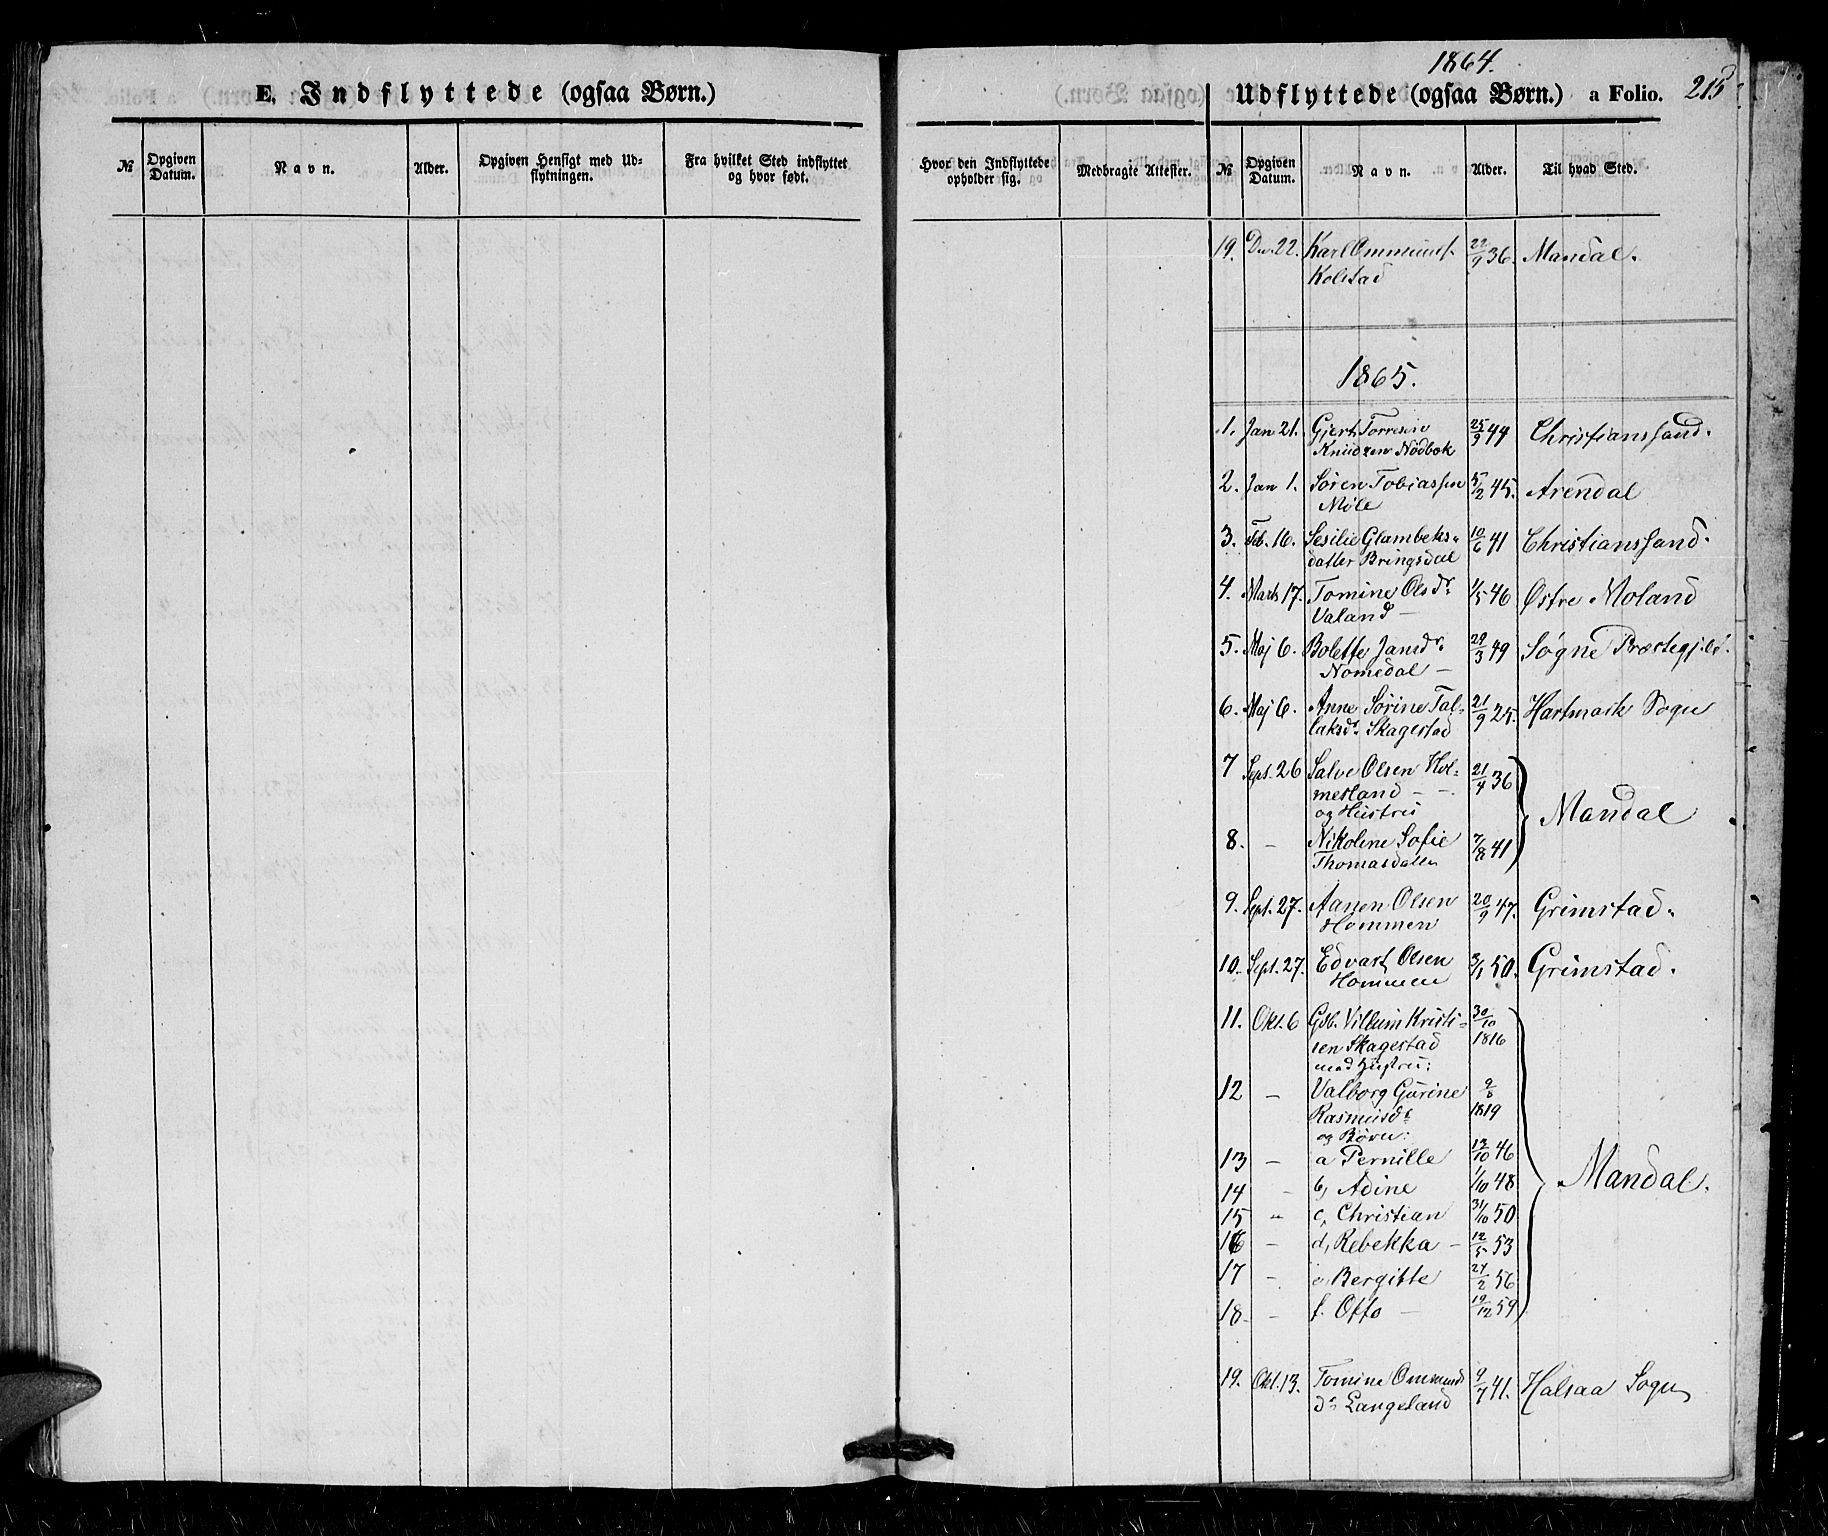 E. Indflyttede (ogsaa Børn.)
№
Opgiven Datum.
Navn.
Alder.
Opgiven Hensigt med Ud-
flytningen.
Fra hvilket Sted indflyttet
og hvor født.
Hvor den Indflyttede
opholder sig.
Medbragte Attester.
1864.
Udflyttede (ogsaa Børn.) a Folio. 215
№
Opgiven Datum.
Navn.
Alder.
Til hvad Sted.
19. Dec. 22. Karl Ommunds. 22/9 36. Mandal.
Kolstad
1865.
1. Jan 21. Gjert Torresen 25/9 44 Christianssand.
Knudsen Nødbok
2. Jan 1. Søren Tobiassen 5/2 45. Arendal
Møle
3. Feb. 16. Sesilie Glambeks- 10/6 41 Christianssand.
datter Bringsdal
4. Marts 17. Tomine Olsdr. 1/5 46 Østre Moland
Valand –
5. Maj 6. Bolette Jansdr. 29/3 49 Søgne Præstegjeld.
Nomedal –
6. Maj 6. Anne Sørine Tal- 21/9 25. Hartmark Sogn
laksdr. Skagestad
7 Sept. 26 Salve Olsen Hol- 21/4 36
mesland – –
og Hustru
Mandal
8. – Nikoline Sofie 7/8 41
Thomasdatter
9. Sept. 27. Aanen Olsen 20/9 47. Grimstad.
Hommen
10. Sept. 27. Edvart Olsen 3/1 50. Grimstad.
Hommen
11. Okt. 6 Gdb. Villum Kristi- 30/10
sen Skagestad 1816
med Hustru:
12 – Valborg Gurine
Rasmusdr. 1819
og Børn:
13 – a Pernille 12/10 46
Mandal.
14 – b, Adine 1/10 48
15 – c, Christian 31/10 50
16 – d, Rebekka – 12/5 53
17 – e, Bergitte 27/2 56
18 – f. Otto – 19/12 59
19. Okt. 13. Tomine Ommunds 9/7 41. Halsaa Sogn
dr. Langeland